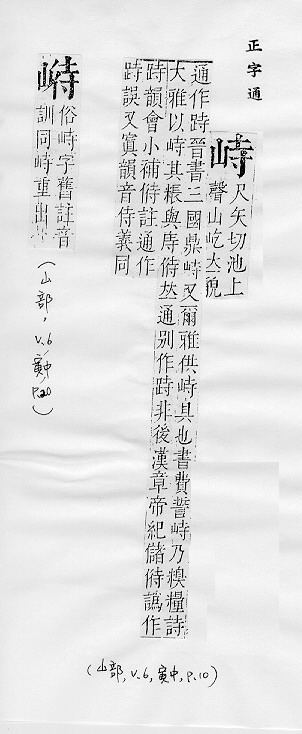 正字通
峙
尺矢切池上
聲山屹立貌
通作跱晉書三國鼎峙又爾雅供峙具也書費誓峙乃糗糧詩
大雅以峙其粻與庤偫𠀤通別作跱非後漢章帝紀儲偫譌作
跱韻會小補偫註通作
跱誤又寘韻音侍義同
(山部, v.6, 寅中, p.10)
俗峙字舊註音
訓同峙重出
(山部, v.6, 寅中, p.20)